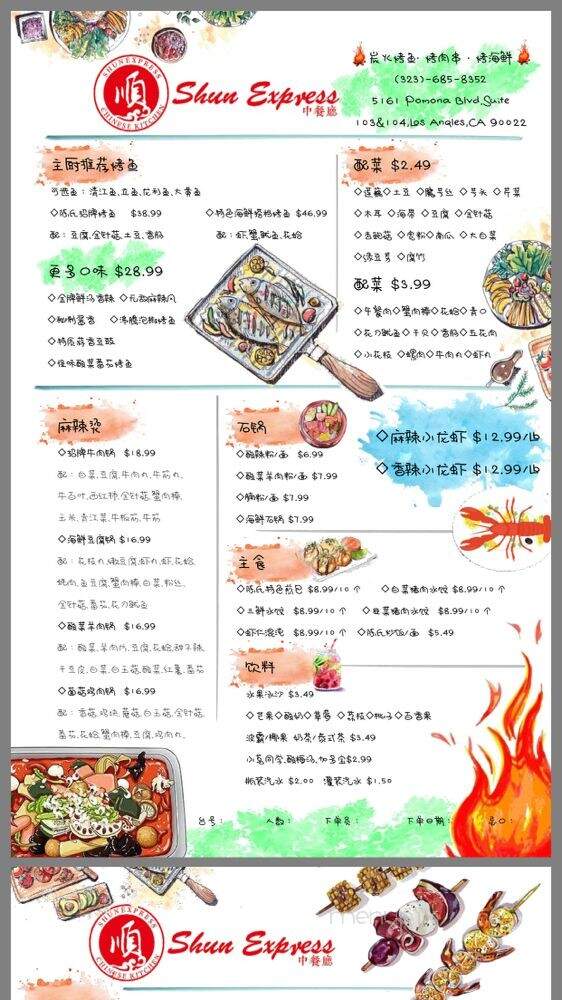 SHUNEXPRESS
順
CHINESE KITCHEN
Shun Express
中餐廳
炭火烤鱼·烤肉串·烤海鲜
(323)-685-8352
5161 Pomona Blvd,Suite
103&104,Los Angles,CA 90022
主厨推荐烤鱼
可选鱼：清江鱼,立鱼,花利鱼,大黄鱼
◇陈氏招牌烤鱼 $38.99 ◇特色海鲜搭档烤鱼 $46.99
配：豆腐,金针菇,土豆,香肠 配：虾,蟹,鱿鱼,花蛤
更多口味 $28.99
◇金牌鲜汤香辣 ◇元极麻辣风
◇秘制酱香 ◇沸腾泡椒烤鱼
◇特质蒜香豆豉
◇怪味酸菜番茄烤鱼
配菜 $2.49
◇莲藕◇土豆 ◇魔芋丝 ◇芋头 ◇芹菜
◇木耳 ◇海带 ◇豆腐 ◇金针菇
◇杏鲍菇 ◇宽粉◇南瓜 ◇大白菜
◇绿豆芽 ◇腐竹
配菜 $3.99
◇午餐肉◇蟹肉棒◇花蛤◇青口
◇花刀鱿鱼◇干贝◇香肠◇五花肉
◇小花枝 ◇螺肉◇牛肉丸◇虾丸
麻辣烫
◇招牌牛肉锅 $18.99
配：白菜,豆腐,牛肉丸,牛筋丸,
牛百叶,西红柿,金针菇,蟹肉棒,
玉米,青江菜,牛板筋,牛筋
◇海鲜豆腐锅 $16.99
配：花枝丸,嫩豆腐,虾丸,虾,花蛤
烧肉,鱼豆腐,蟹肉棒,白菜,粉丝,
金针菇,番茄,花刀鱿鱼
◇酸菜羊肉锅 $16.99
配：酸菜,羊肉片,豆腐,花蛤,
干豆皮,白菜,白玉菇,酸菜,红薯,番茄
◇菌菇鸡肉锅 $16.99
配：香菇,鸡块,蘑菇,白玉菇,金针菇,
番茄,花蛤蟹肉棒,豆腐,鸡肉丸,
石锅
◇酸辣粉/面 $6.99
◇酸菜羊肉粉/面 $7.99
◇腩粉/面 $7.99
◇海鲜石锅 $7.99
◇麻辣小龙虾 $12.99/Lb
◇香辣小龙虾 $12.99/Lb
主食
◇陈氏特色煎包 $8.99/10个 ◇白菜猪肉水饺 $8.99/10个
◇三鲜水饺 $8.99/10个 ◇韭菜猪肉水饺 $8.99/10个
◇虾仁混沌 $8.99/10个 ◇陈氏炒饭/面 $5.49
饮料
水果冰沙 $3.49
◇芒果◇酸奶◇草莓 ◇荔枝◇桃子◇百香果
波霸/椰果 奶茶/泰式茶 $3.49
小茗同学,酸梅汤,加多宝$2.99
瓶装汽水 $2.00 灌装汽水 $1.50
台号： 人数： 下单员： 下单日期： 总口：
SHUNEXPRESS
順
CHINESE KITCHEN
Shun Express
中餐廳